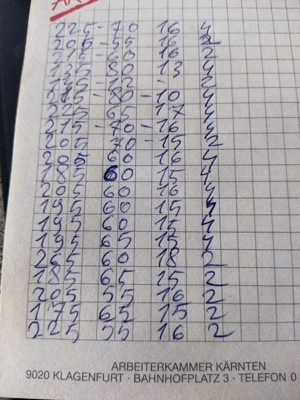 225-70 16 4
205-55 16 2
215 60 16 2
155 80 13 4
215-80-10 4
225 65 17 4
215-70-16 4
205 70-15 2
205 60 16 4
185 60 15 4
205 60 16 4
195 60 15 4
195 60 15 4
195 65 15 4
265 60 18 2
185 65 15 2
205 55 16 2
175 65 15 2
225 55 16 2
ARBEITERKAMMER KÄRNTEN
9020 KLAGENFURT · BAHNHOFPLATZ 3 · TELEFON 0